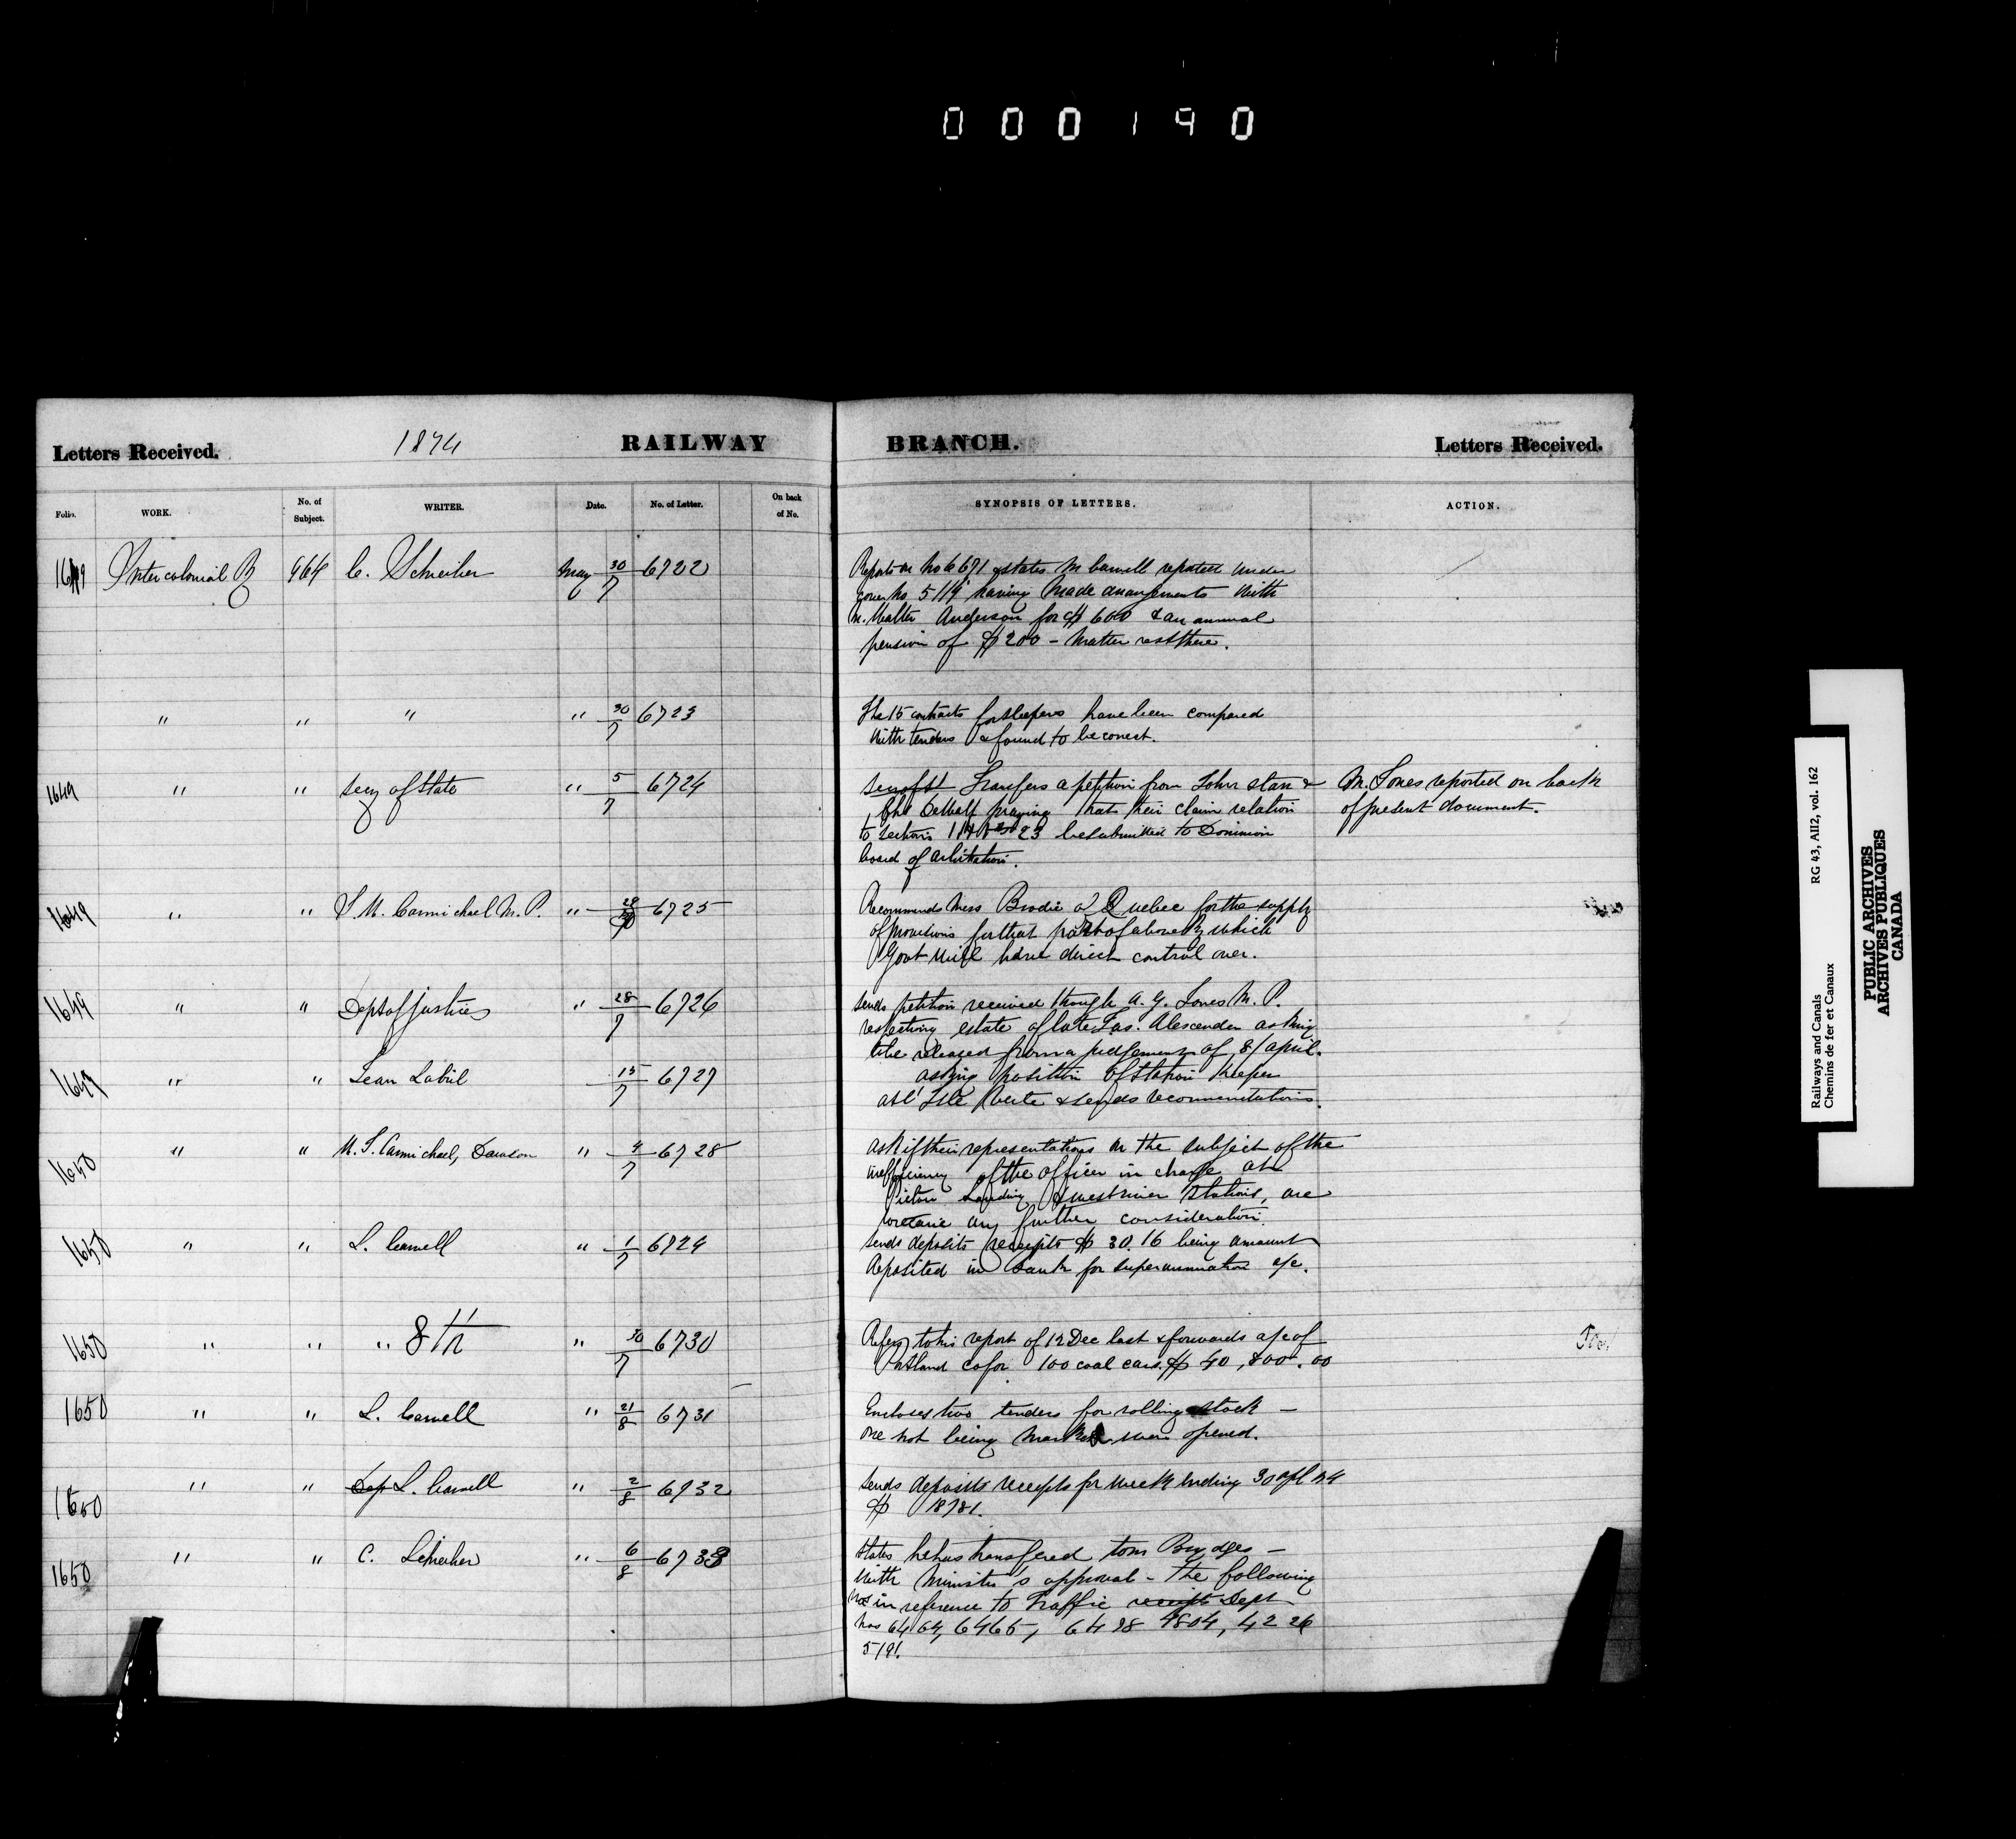 000190
Letters Received. 1874 RAILWAY BRANCH. Letters Received.
Folio. WORK. No. of Subject. WRITER. Date. No. of Letter. On back of No. SYNOPSIS OF LETTERS. ACTION.
1649 Intercolonial R 464 C. Schreiber May 30/7 6722
Reports on No 6671 & states Mr Carvell reported under
cover No. 5119 having made arrangements with
Mr. Walter Anderson for $600 & an annual
pension of $200 - Matter rest there.
" " " " 30/7 6723
The 15 contracts for sleepers have been compared
with tenders & found to be correct.
1649 " " Secy of State " 5/7 6724
Transfers a petition from John Starr &
DeWolf praying that their claim relation
to Sections 23 be submitted to Dominion
board of arbitration.
Mr. Jones reported on back
of present document.
1649 " " Carmichael M.P. " 6725
Recommends Mess Brodie of Quebec for the supply
of provisions for that part of above R which
Govt will have direct control over.
1649 " " Dept of Justice " 28/7 6726
Sends petition received through A. G. Jones M.P.
respecting estate of late Jas. Alexander asking
to be released from a judgement of 8/April.
1649 " " Jean Labril 15/7 6727
asking position of station keeper
at l'Isle Verte & sends recommendations.
1650 " " Carmichael, Dawson " 4/7 6728
ask if their representations on the subject of the
inefficiency of the officer in charge at
Pictou Landing & West river Stations, are
to receive any further consideration.
1650 " " L. Carvell " 1/7 6729
Sends deposits receipts $ 30.16 being amount
deposited in Bank for superannuation a/c.
1650 " " " 8th " 30/7 6730
Refers to his report of 12 Dec last & forwards a/c of
Portland Co for 100 coal cars. $ 40,800.00
1650 " " L. Carvell " 21/8 6731
Encloses two tenders for rolling stock -
one not being marked were opened.
1650 " " Dep L. Carvell " 2/8 6732
Sends deposits receipts for week ending 30 apl 74
$ 18781.
1650 " " C. Schreiber " 6/8 6733
States he has transfered to Mr Brydges -
with Minister's approval - The following
Nos in reference to Traffic receipts Dept
Nos 6464, 6465, 6498 4804, 4226
519!
Railways and Canals RG 43, AII2, vol. 162
Chemins de fer et Canaux
PUBLIC ARCHIVES
ARCHIVES PUBLIQUES
CANADA